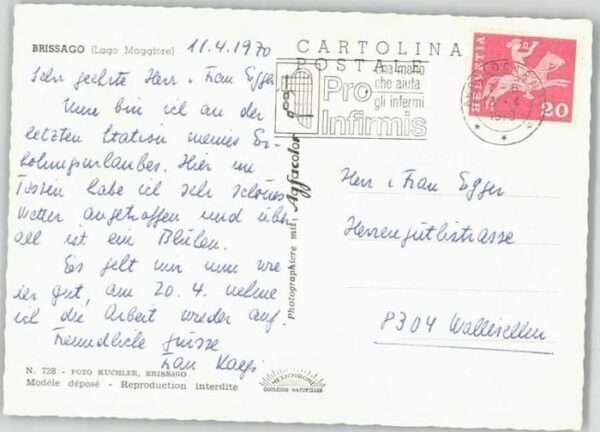 BRISSAGO (Lago Maggiore) 11.4.1970
CARTOLINA
POSTALE
una mano
che aiuta
gli infermi
Pro
Infirmis
HELVETIA
20
Sehr geehrte Herr & Frau Egger
Nun bin ich an der
letzten Station meines Er-
holungsurlaubes. Hier im
Tessin habe ich sehr schönes
Wetter angetroffen und über-
all ist ein Blühen.
Es geht mir nun wie-
der gut, am 20. 4. nehme
ich die Arbeit wieder auf.
Freundliche Grüsse
Frau Kaegi
Photographiere mit Agfacolor
Herr & Frau Egger
Herrengütlistrasse
8304 Wallisellen
N. 728 - FOTO KUCHLER, BRISSAGO
Modèle déposé - Reproduction interdite
MEXICHROME
COULEURS NATURELLES